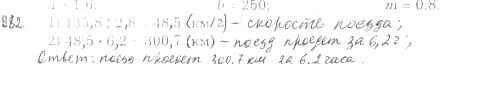 b = 250; m = 0.8.
882. 1) 135,8 : 2,8 = 48,5 (км/ч) – скорость поезда;
2) 48,5 · 6,2 = 300,7 (км) – поезд проедет за 6,2 ч;
Ответ: поезд проедет 300.7 км за 6.2 часа.